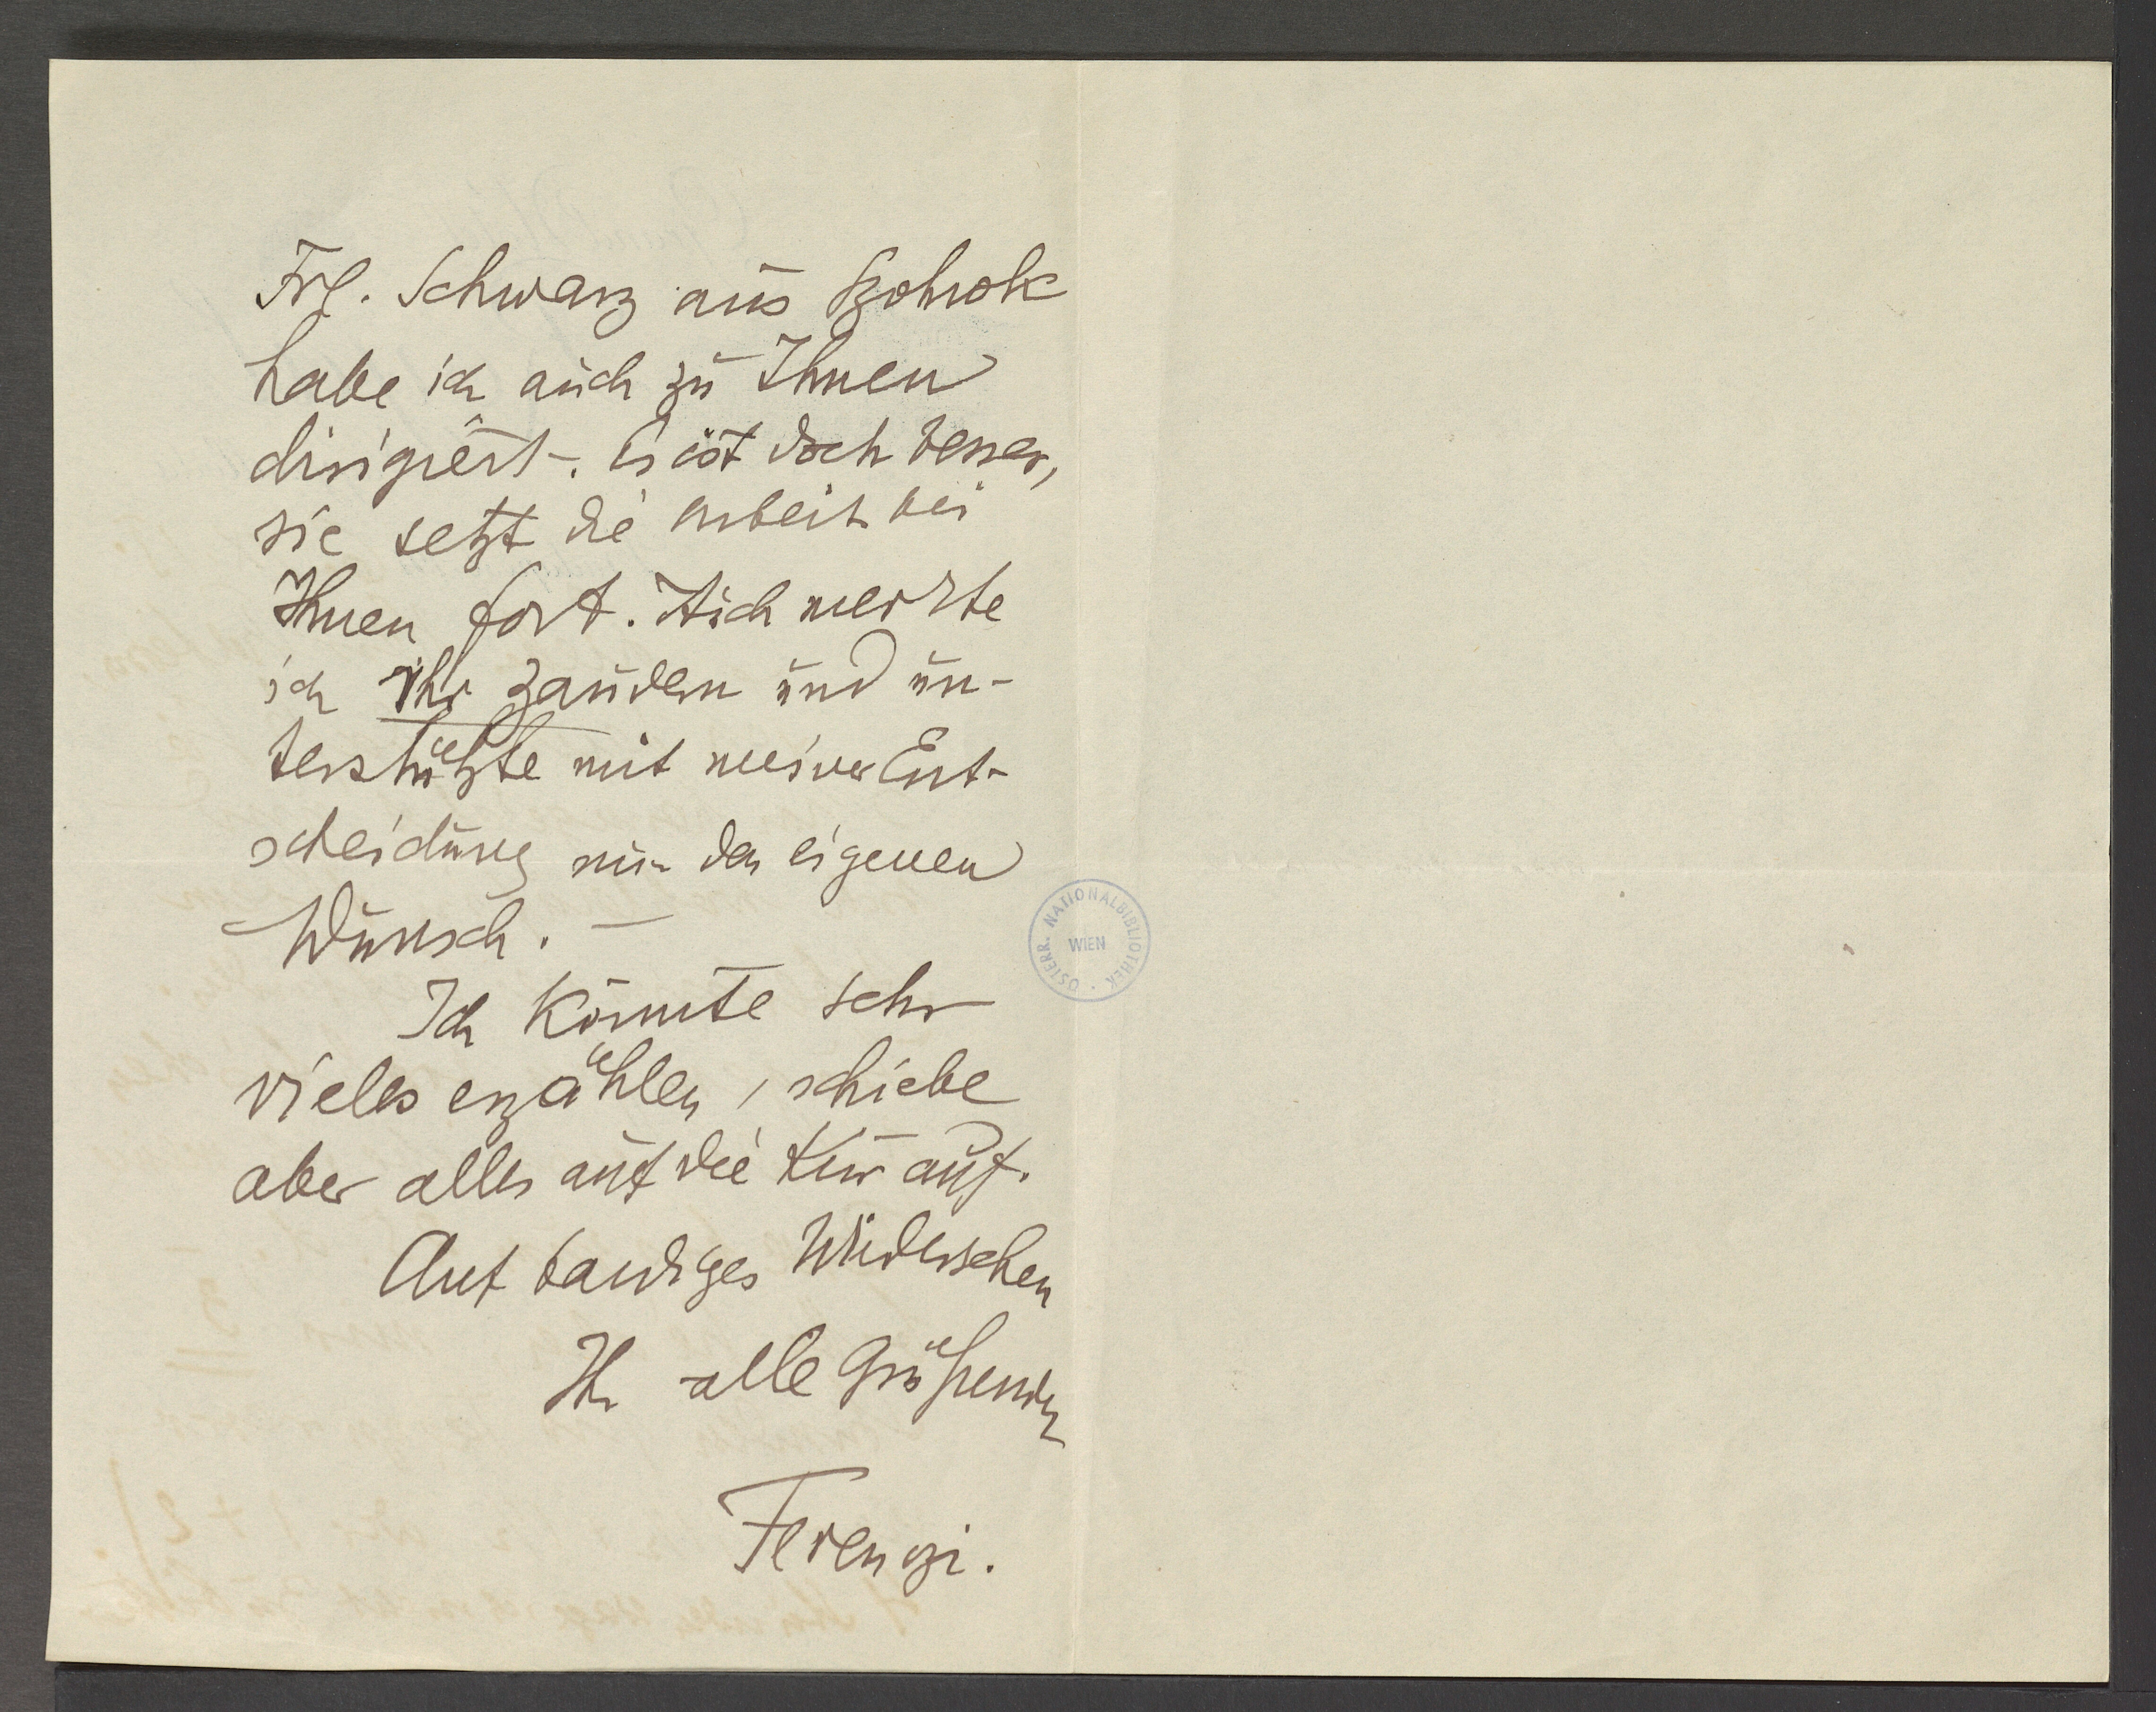 Frl. Schwarz aus Szolnok
habe ich auch zu Ihnen
dirigiert. Es ist doch besser,
sie setzt die Arbeit bei
Ihnen fort. Auch merkte
ich ihr Zaudern und un-
terstützte mit meiner Ent-
scheidung nur den eigenen
Wunsch. —
Ich könnte sehr
vieles erzählen, schiebe
aber alles auf die Kur auf.
Auf baldiges Wiedersehen
Ihr alle Grüßender
Ferenczi.
ÖSTERR. NATIONALBIBLIOTHEK
WIEN